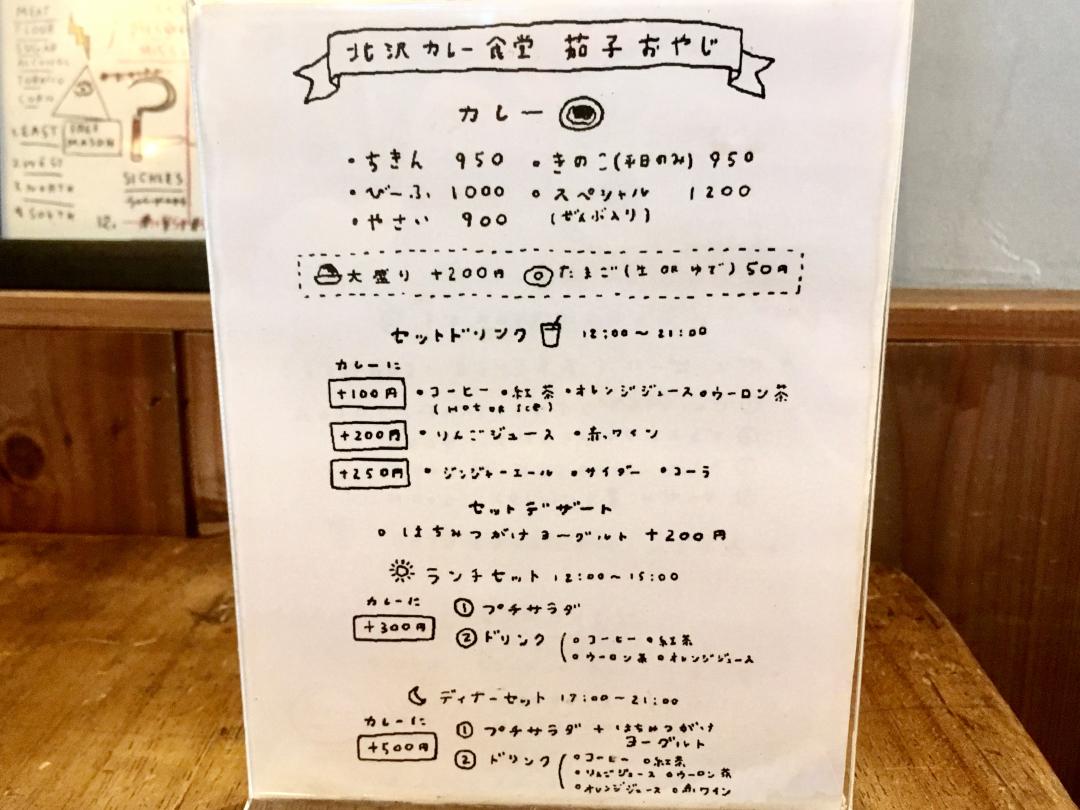 北沢カレー食堂 茄子おやじ
カレー
・ちきん 950 ・きのこ(平日のみ) 950
・びーふ 1000 ・スペシャル 1200
・やさい 900 (ぜんぶ入り)
大盛り +200円 たまご(生 OR ゆで) 50円
セットドリンク 12:00〜21:00
カレーに
+100円 ・コーヒー ・紅茶 ・オレンジジュース ・ウーロン茶
(HOT OR ICE)
+200円 ・りんごジュース ・赤ワイン
+250円 ・ジンジャーエール ・サイダー ・コーラ
セットデザート
・はちみつがけヨーグルト +200円
ランチセット 12:00〜15:00
カレーに
+300円
① プチサラダ
② ドリンク ( ・コーヒー ・紅茶
・ウーロン茶 ・オレンジジュース
ディナーセット 17:00〜21:00
カレーに
+500円
① プチサラダ + はちみつがけ
ヨーグルト
② ドリンク ( ・コーヒー ・紅茶
・りんごジュース ・ウーロン茶
・オレンジジュース ・赤ワイン
MEAT
FLOUR
SUGAR
ALCOHOL
TOBACCO
CORN
1. EAST
FREE
MASON
2. WEST
3. NORTH
4. SOUTH
?
12.